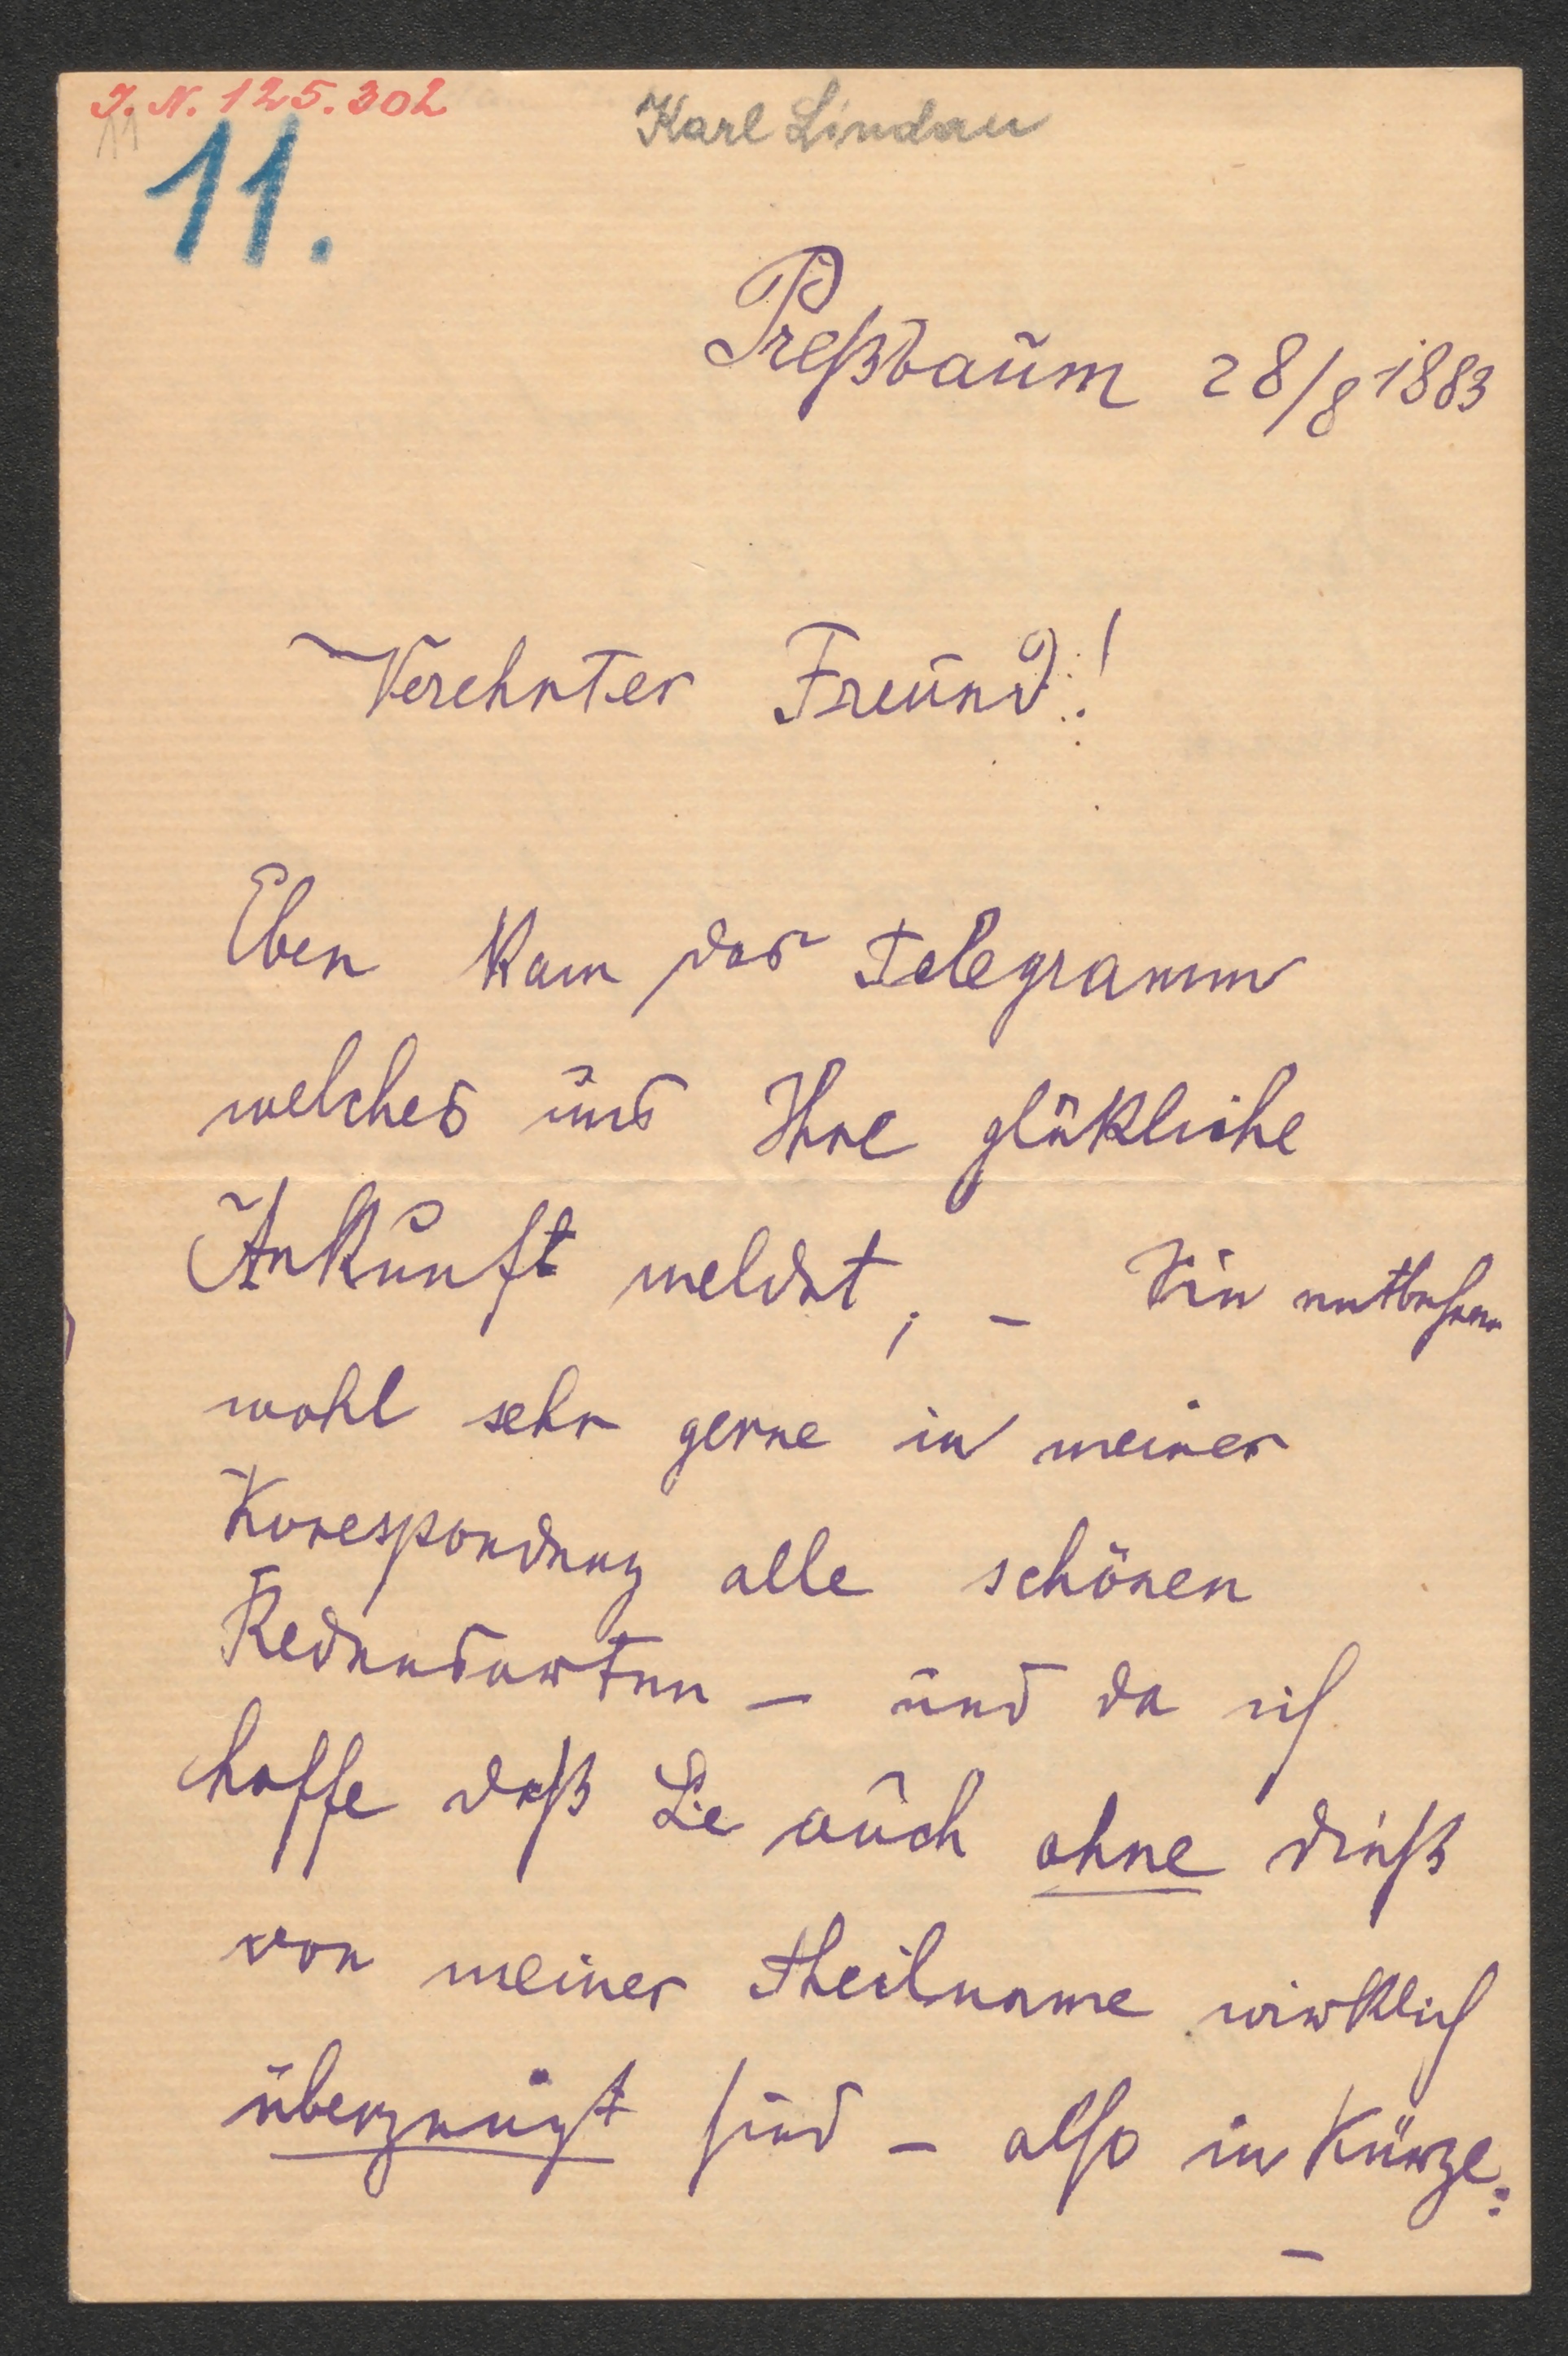 I. N. 125.302
11
Karl Lindau
11.
Preßbaum 28/8 1883
Verehrter Freund!
Eben kam das Telegramm
welches uns Ihre glükliche
Ankunft meldet, – Sie entbehren
wohl sehr gerne in meiner
Korespondenz alle schönen
Redensarten – und da ich
hoffe daß Sie auch ohne dieß
von meiner Theilname wirklich
überzeugt sind – also in Kürze:
–